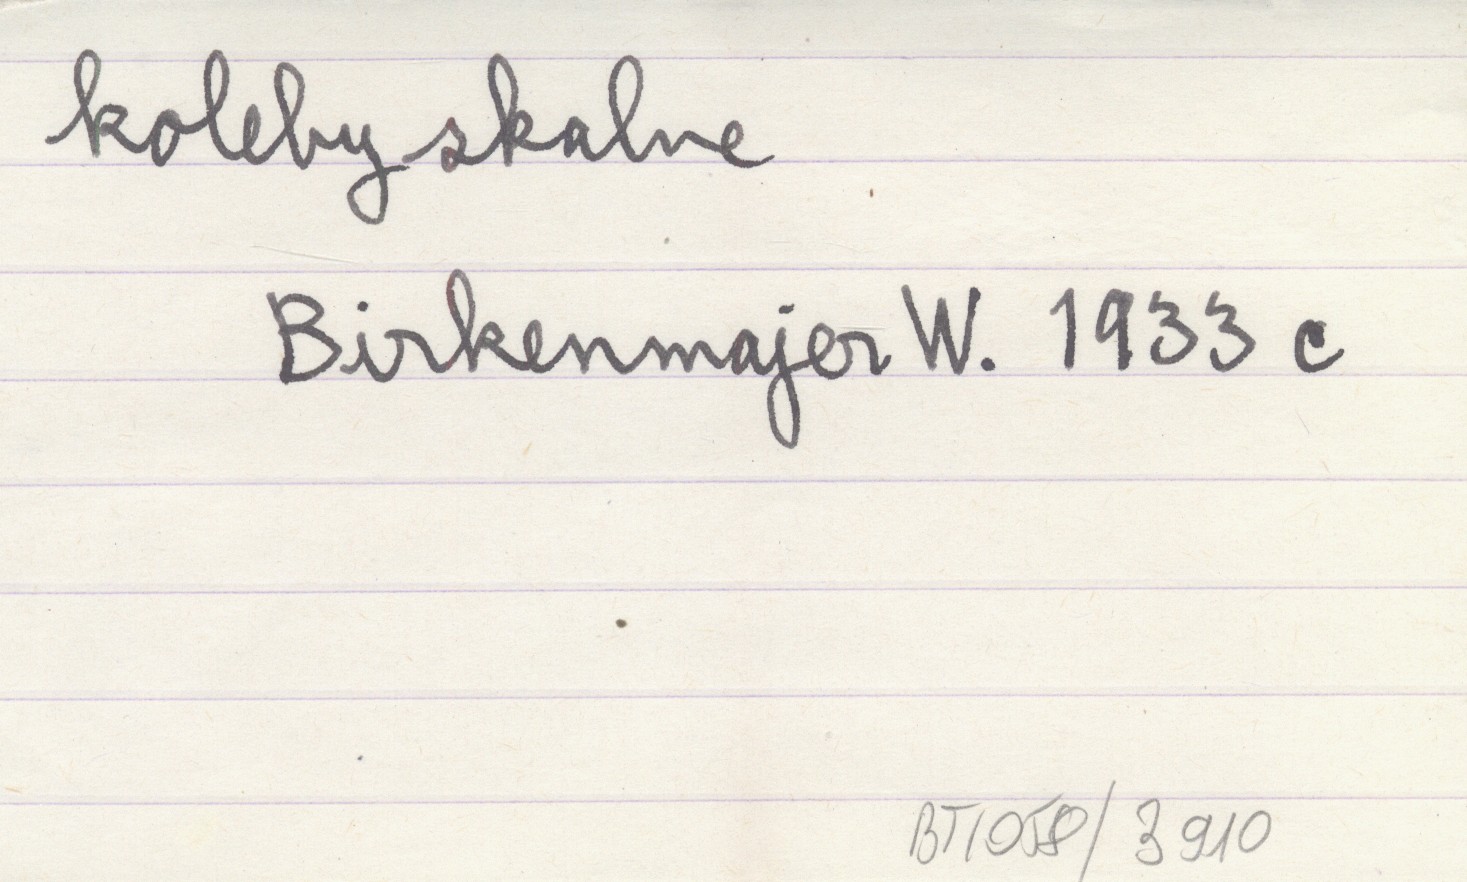 koleby skalne
Birkenmajer W. 1933 c
BT/058/3910